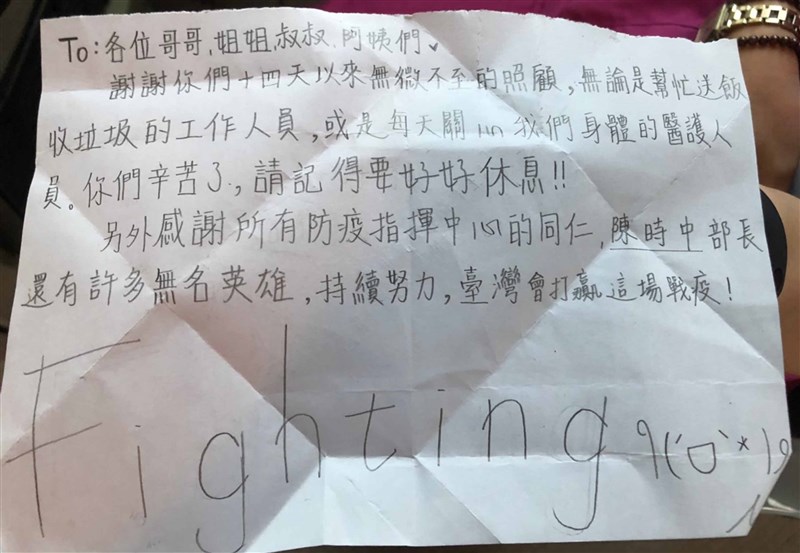 To：各位哥哥、姐姐、叔叔、阿姨們。
謝謝你們十四天以來無微不至的照顧，無論是幫忙送飯
收垃圾的工作人員，或是每天關心我們身體的醫護人
員。你們辛苦了，請記得要好好休息!!
另外感謝所有防疫指揮中心的同仁，陳時中部長
還有許多無名英雄，持續努力，臺灣會打贏這場戰疫！
Fighting ٩(ˊㄖˋ*)و